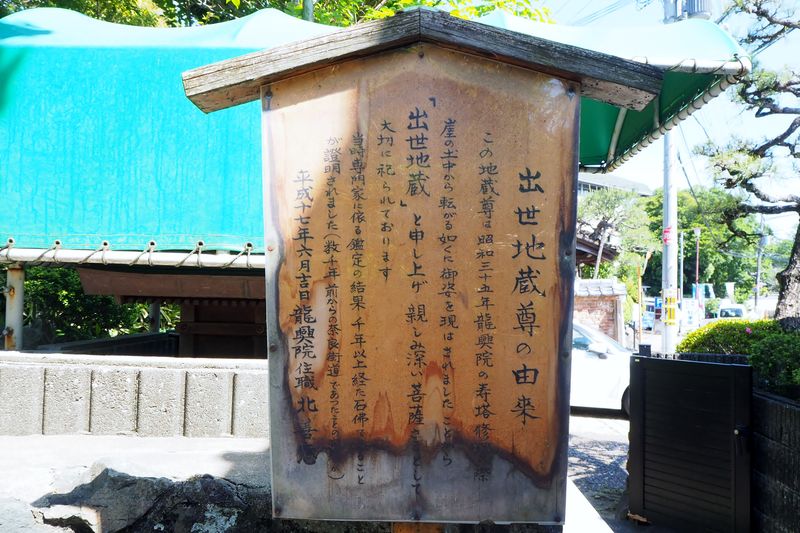 出世地蔵尊の由来
この地蔵尊は昭和三十五年龍興院の寿塔修 際
崖の土中から転がる如くに御姿を現はされましたことから
「出世地蔵」と申し上げ親しみ深い菩薩さまとして
大切に祀られております
当時専門家に依る鑑定の結果千年以上経た石佛であること
が證明されました（数千年前からの奈良街道であったことの か）
平成十七年六月吉日龍興院住職北